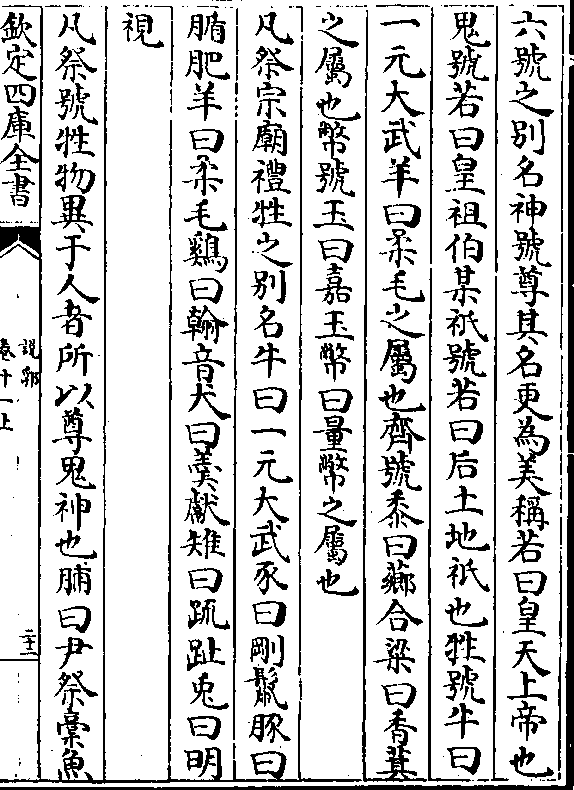 六號之别名神號尊其名更為美稱若曰皇天上帝也
鬼號若曰皇祖伯某祇號若曰后土地祇也牲號牛曰
一元大武羊曰柔毛之屬也齊號黍曰薌合粱曰香萁
之屬也幣號玉曰嘉玉幣曰量幣之屬也
凡祭宗廟禮牲之别名牛曰一元大武豕曰剛鬛豚曰
腯肥羊曰柔毛鷄曰翰音犬曰羮獻雉曰疏趾兎曰明
視
凡祭號牲物異于人者所以尊鬼神也脯曰尹祭槀魚
欽定四庫全書
說郛
卷十一上
二十二